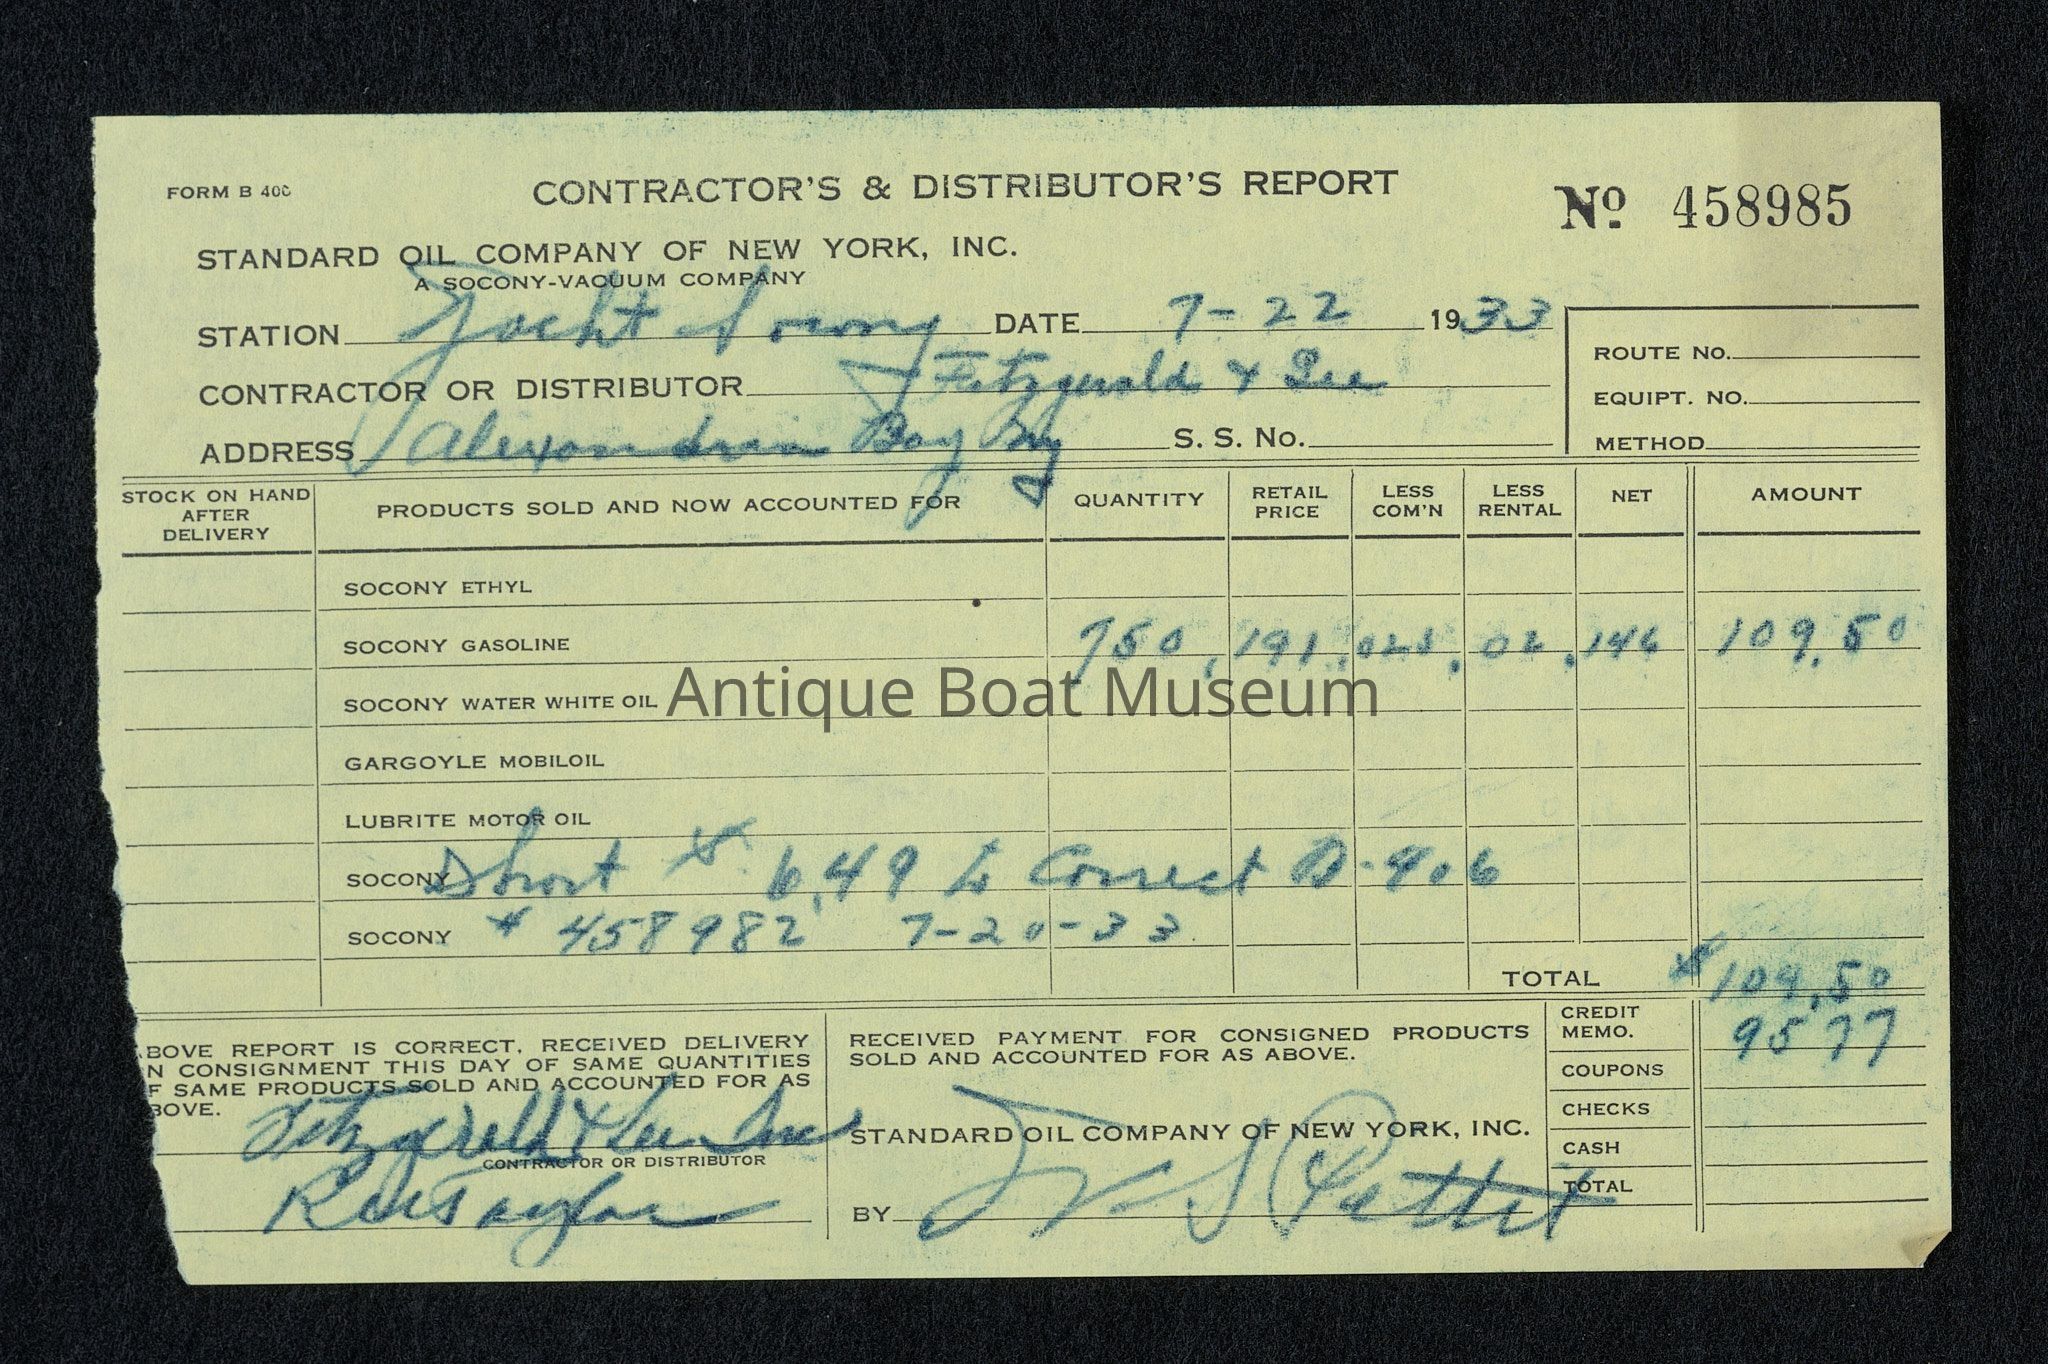 FORM B 400
CONTRACTOR'S & DISTRIBUTOR'S REPORT
No. 458985
STANDARD OIL COMPANY OF NEW YORK, INC.
A SOCONY-VACUUM COMPANY
STATION Yacht Socony DATE 7-22 1933
ROUTE NO.
CONTRACTOR OR DISTRIBUTOR Fitzgerald & Lee
EQUIPT. NO.
ADDRESS Alexandria Bay Ny S. S. No.
METHOD
STOCK ON HAND AFTER DELIVERY PRODUCTS SOLD AND NOW ACCOUNTED FOR QUANTITY RETAIL PRICE LESS COM'N LESS RENTAL NET AMOUNT
SOCONY ETHYL
SOCONY GASOLINE 750 .191 .025 .02 .146 109.50
SOCONY WATER WHITE OIL
Antique Boat Museum
GARGOYLE MOBILOIL
LUBRITE MOTOR OIL
SOCONY Short $ 6.49 to Correct B-406
SOCONY # 458982 7-20-33
TOTAL $109.50
CREDIT MEMO. 9577
BOVE REPORT IS CORRECT. RECEIVED DELIVERY
N CONSIGNMENT THIS DAY OF SAME QUANTITIES
F SAME PRODUCTS SOLD AND ACCOUNTED FOR AS
BOVE.
RECEIVED PAYMENT FOR CONSIGNED PRODUCTS
SOLD AND ACCOUNTED FOR AS ABOVE.
COUPONS
CHECKS
Fitzgerald & Lee Inc
CONTRACTOR OR DISTRIBUTOR
STANDARD OIL COMPANY OF NEW YORK, INC.
CASH
TOTAL
Taylor
BY Pettit